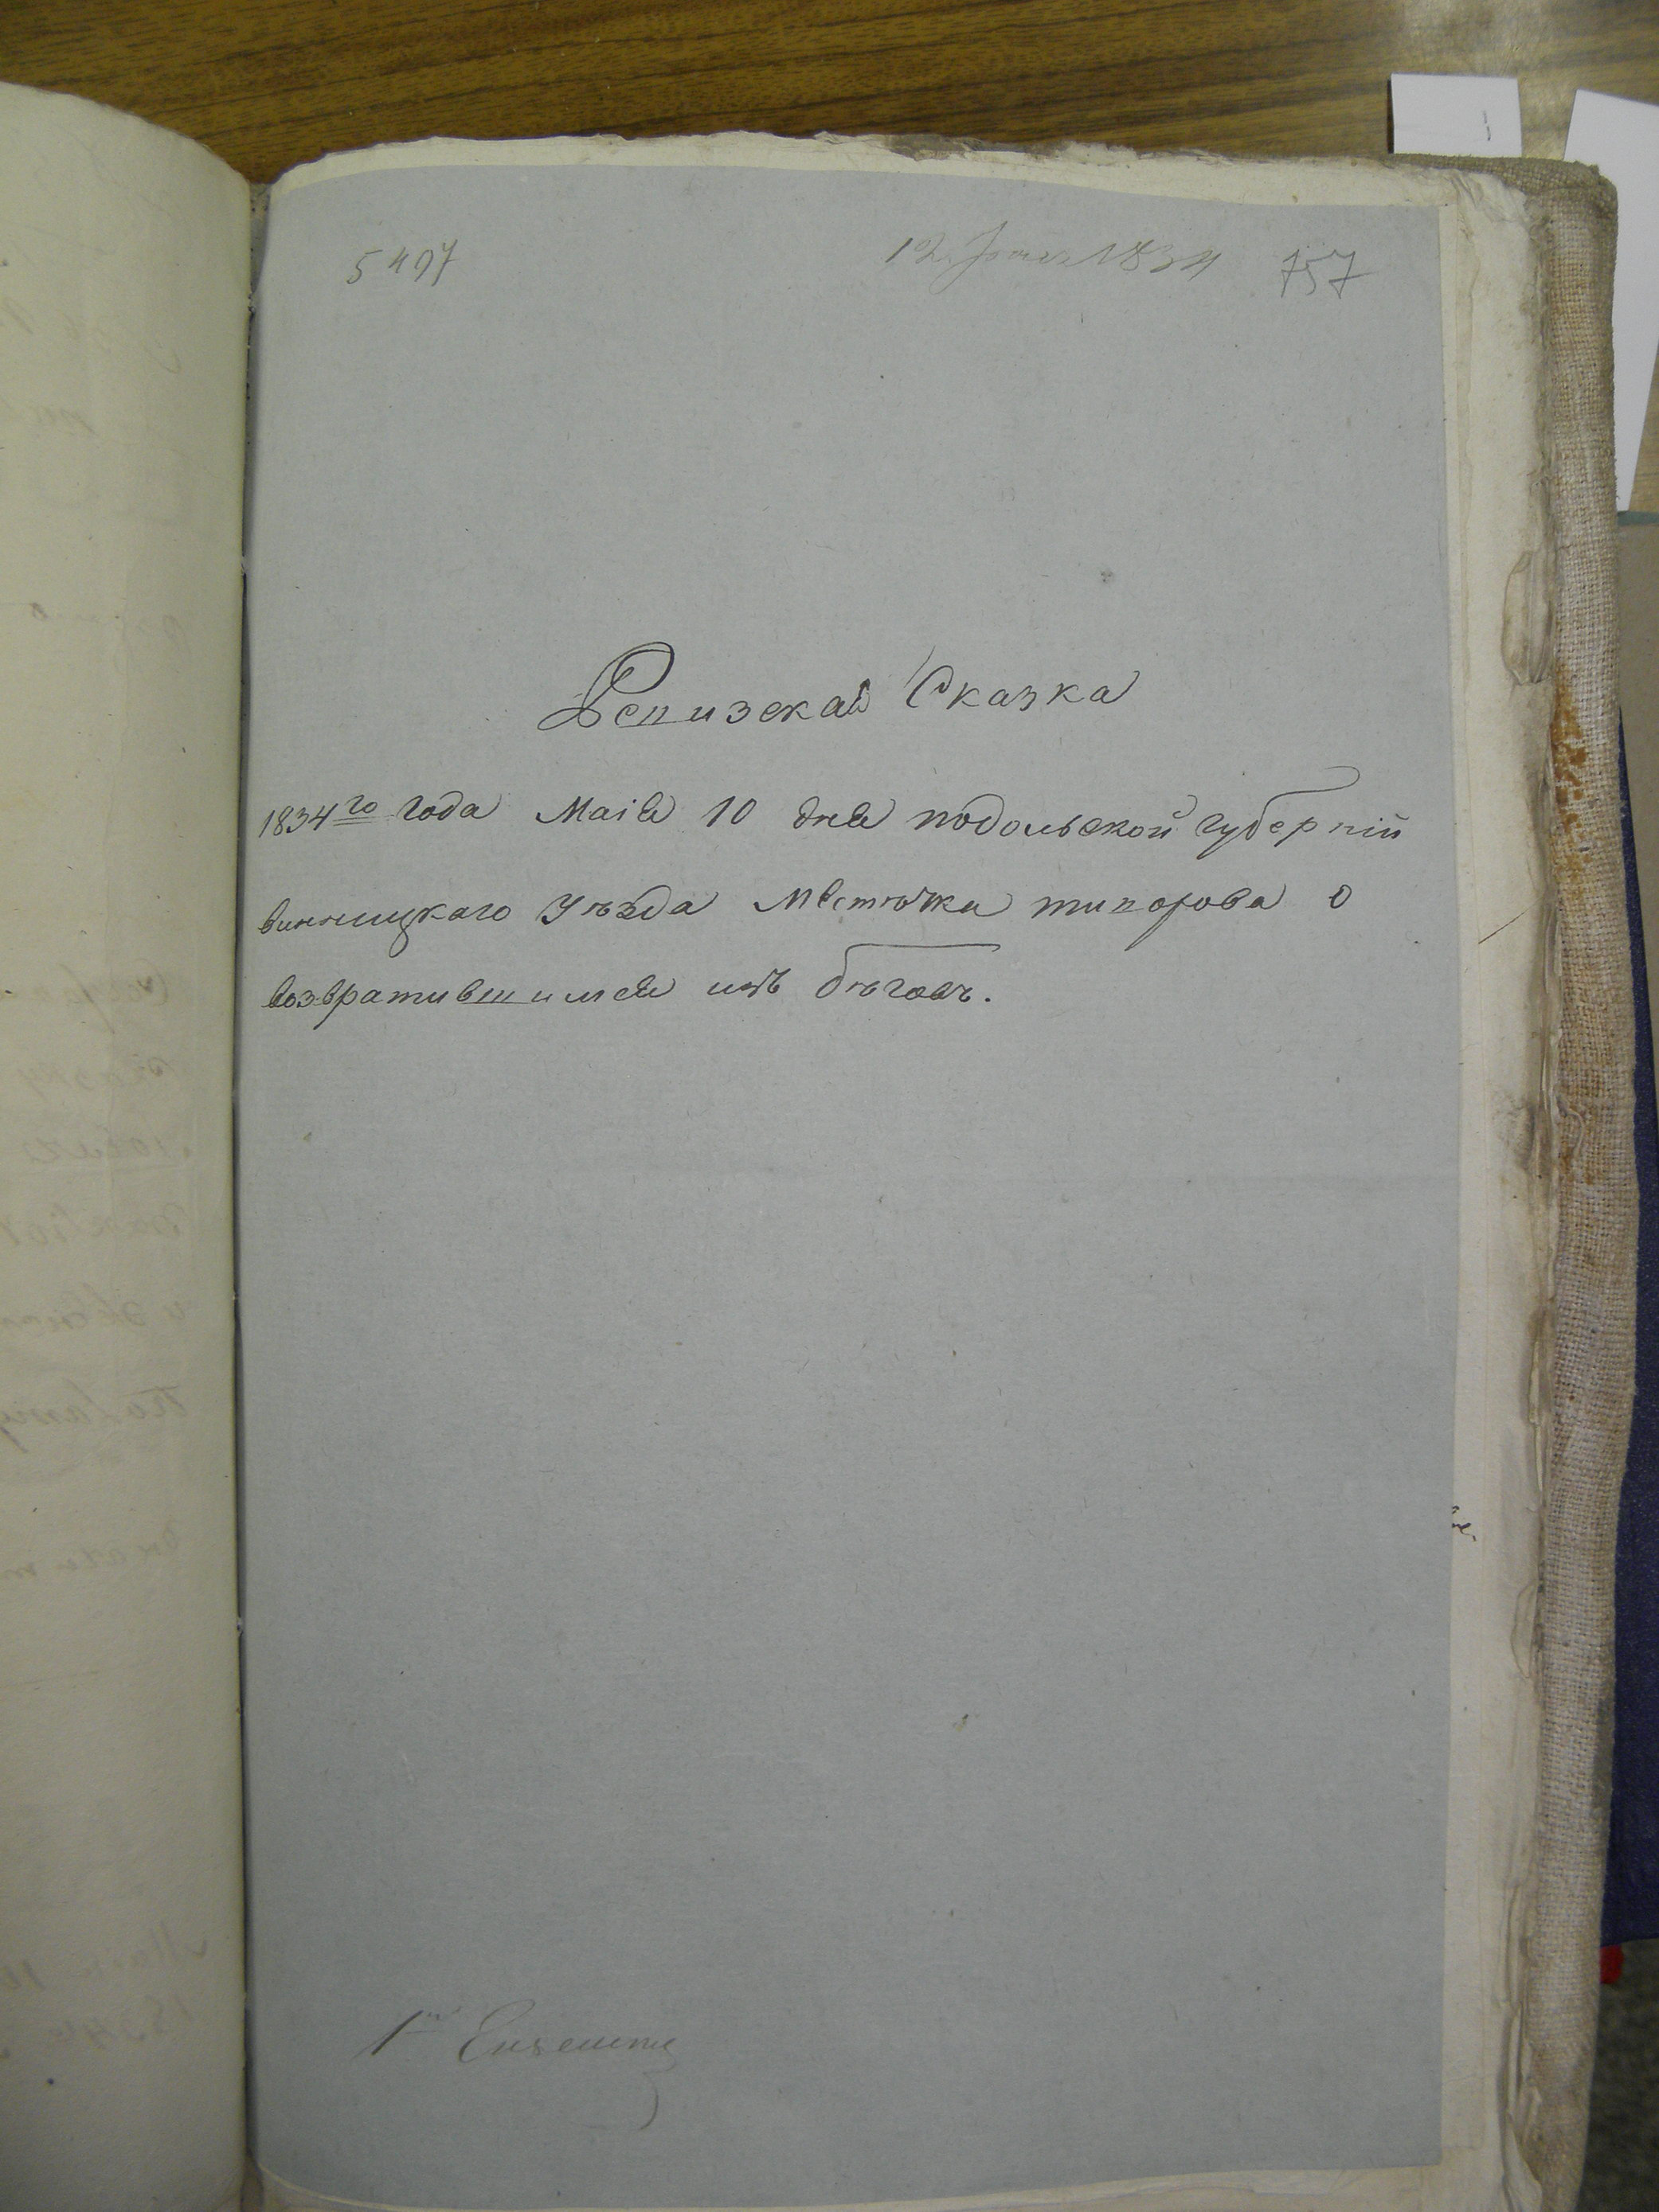 5497
12 1834 757
Ревизская Сказка
1834го года Маія 10 дня подольской губерніи
винницкаго Уѣзда Мѣстечка тиврова о
возвратившимся изъ бѣговъ.